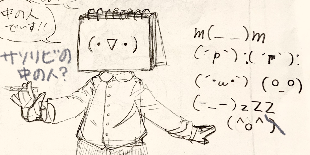 中の人
でーす!!
サソリビの
中の人?
(・▽・)
m(_ _)m
(´p`)(´p`):
(´・ω・`) (o_o)
(-_-)zZZ
(^o^)